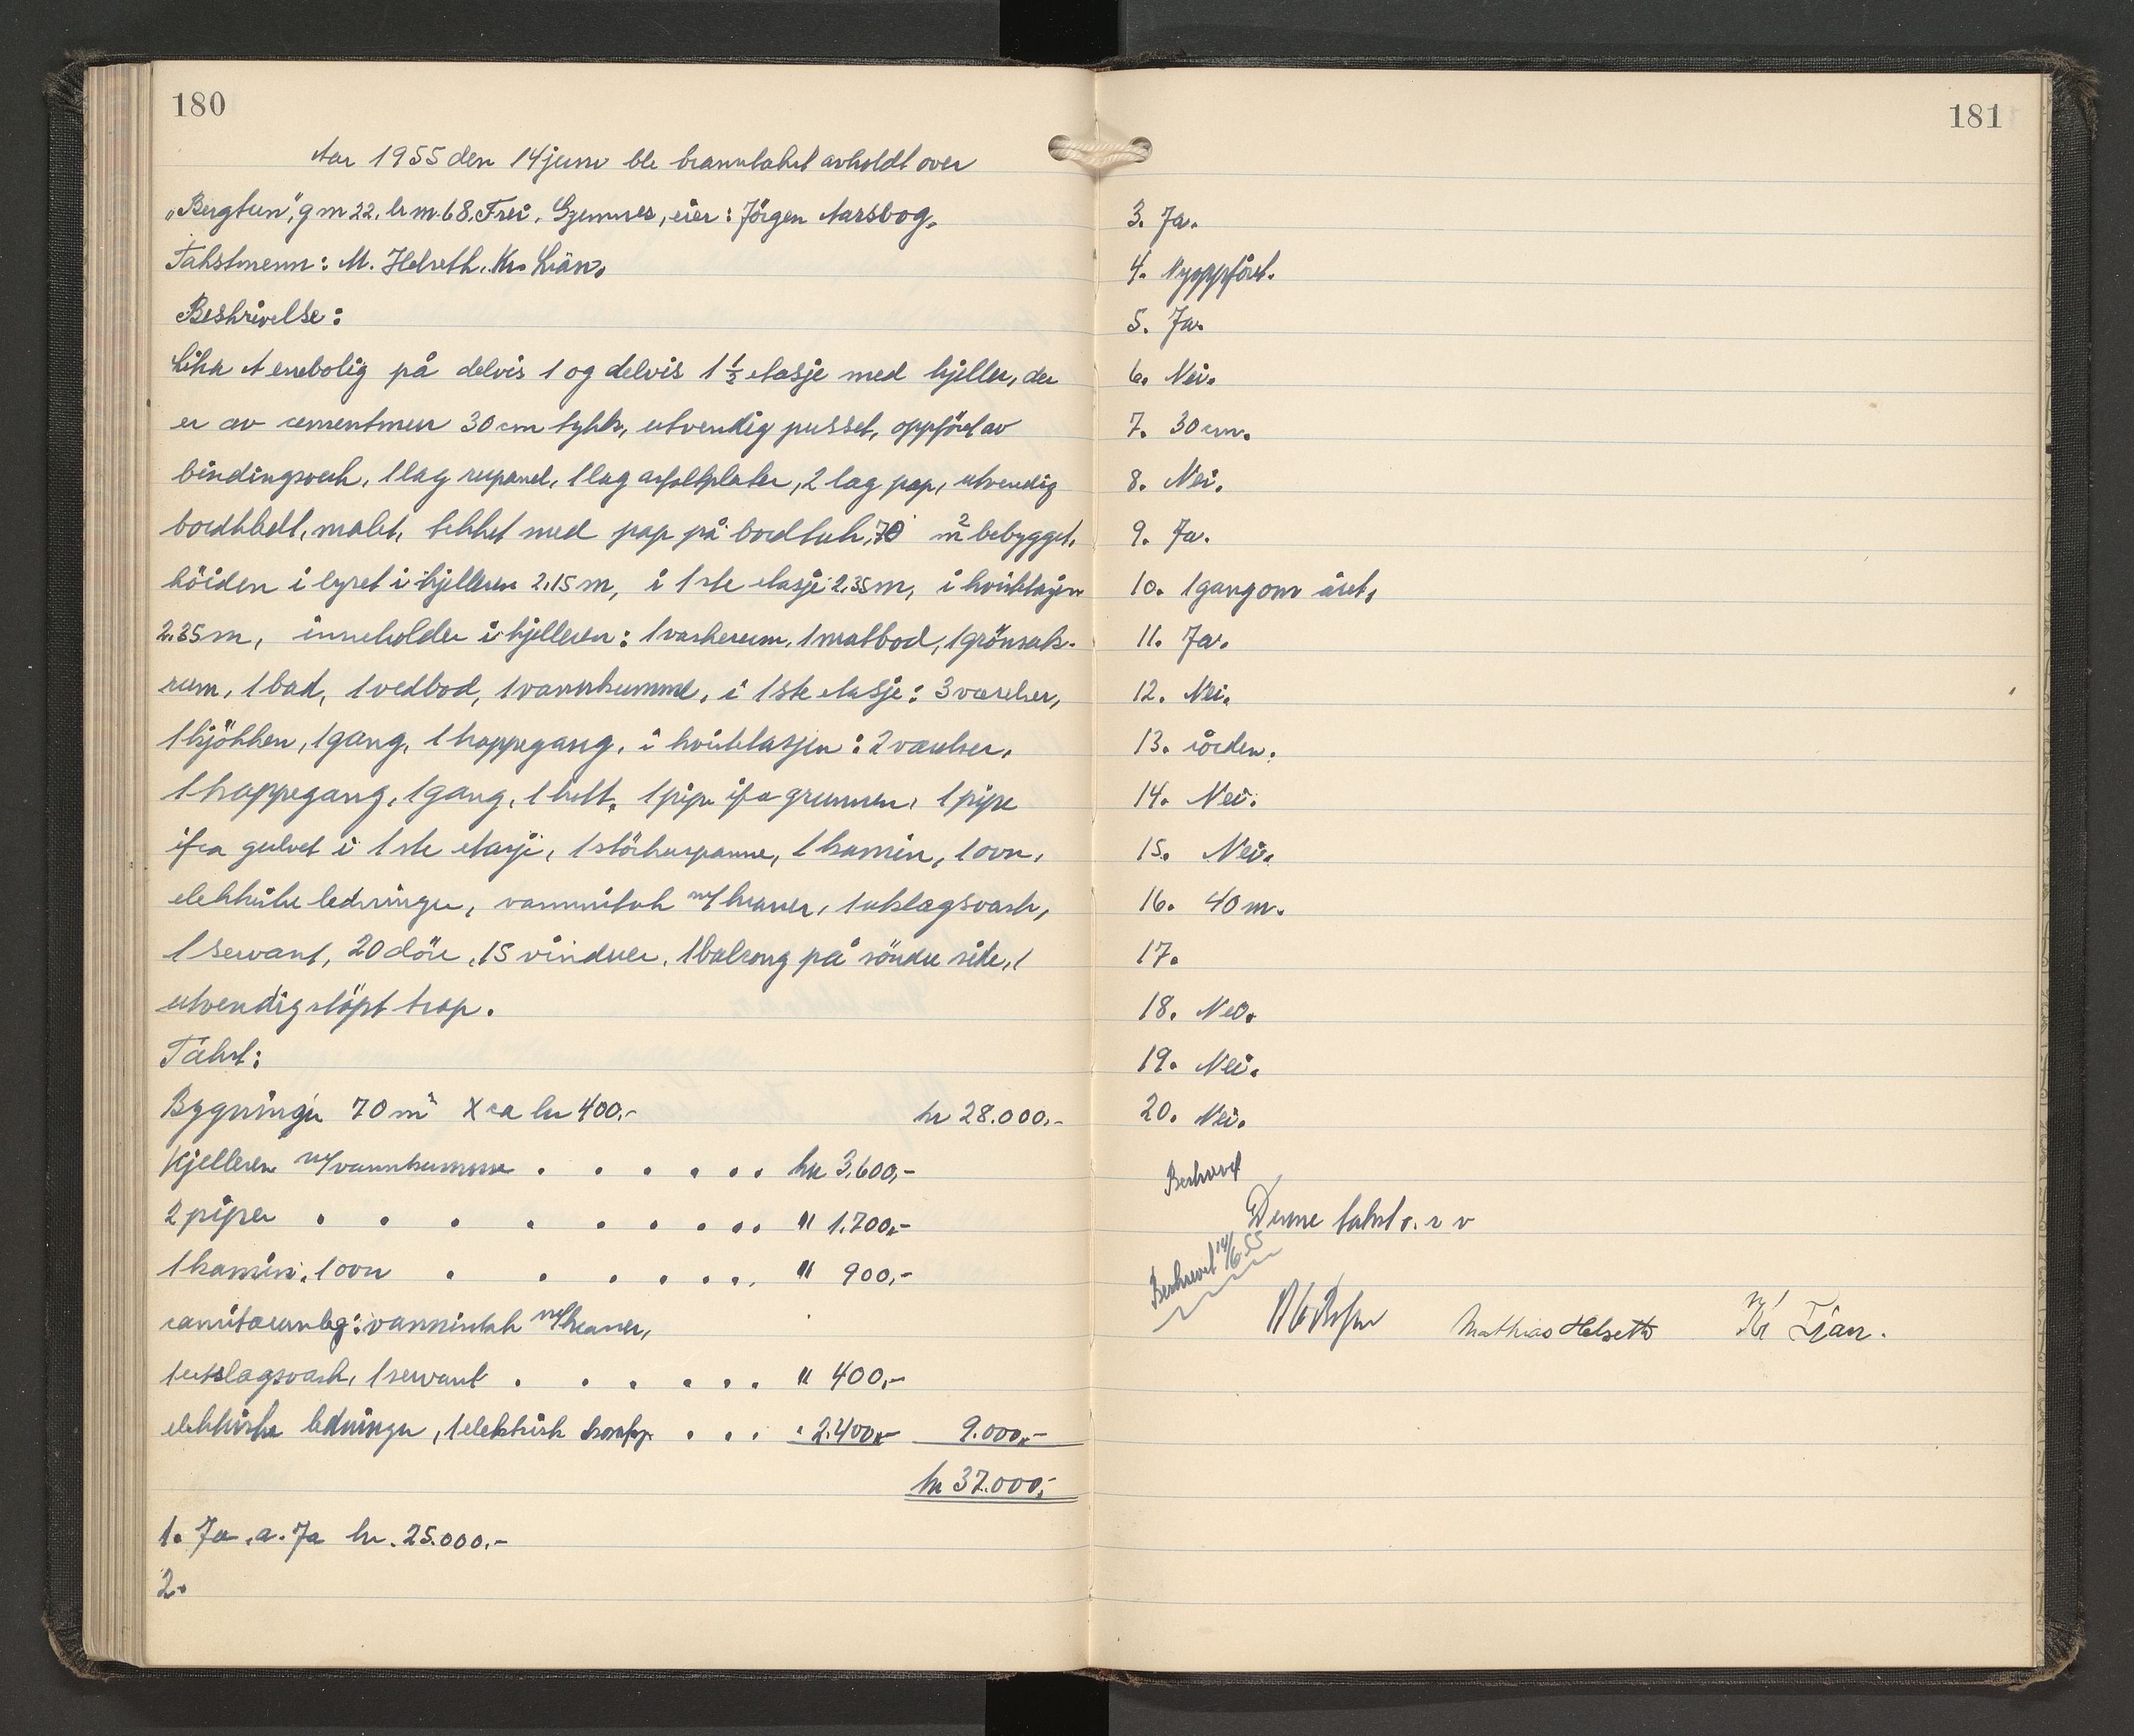 180
Aar 1955 den 14 juni ble branntakst avholdt over
"Bergtun", g nr 22, br nr. 68. Frei, Gjemnes, eier: Jörgen Aarsbog.
Takstmenn: M. Helseth. Kr. Liän.
Beskrivelse:
Litra A enebolig på delvis 1 og delvis 1 1/2 etasje med kjeller, der
er av cementmur 30 cm tykk, utvendig pusset, oppfört av
bindingsverk, 1 lag rupanel, 1 lag asfaltplater, 2 lag pap, utvendig
bordkledt, malet, tekket med pap på bordtak, 70 m² bebygget.
höiden i lyset i kjelleren 2.15 m, i 1ste etasje 2.35 m, i kvistetasjen
2.35 m, inneholder i kjelleren: 1 vaskerum, 1 matbod, 1 grönsak-
rum, 1 bad, 1 vedbod, 1 vannkumme, i 1ste etasje: 3 værelser,
1 kjökken, 1 gang, 1 trappegang, i kvistetasjen: 2 værelser,
1 trappegang, 1 gang, 1 kott. 1 pipe ifra grunnen, 1 pipe
ifra gulvet i 1ste etasje, 1 störhuspanne, 1 kamin, 1 ovn,
elektriske ledninger, vanninntak m/kraner, 1 utslagsvask,
1 servant, 20 döre, 15 vinduer, 1 balkong på söndre side, 1
utvendig stöpt trap.
Takst:
Bygningen 70 m² x ca kr 400,- kr 28.000,-
Kjelleren m/vannkumme . . . . . . kr 3.600,-
2 piper . . . . . . . . . " 1.700,-
1 kamin, 1 ovn . . . . . . . " 900,-
sanitæranleg: vanninntak m/kraner,
1 utslagsvask, 1 servant . . . . . . " 400,-
elektriske ledninger, 1 elektrisk komfyr . . . " 2.400,- 9.000,-
kr 37.000,-
1. Ja. a. Ja kr. 25.000.-
2.
181
3. Ja.
4. Nyoppfört.
5. Ja.
6. Nei.
7. 30 cm.
8. Nei.
9. Ja.
10. 1 gang om året.
11. Ja.
12. Nei.
13. iorden.
14. Nei.
15. Nei.
16. 40 m.
17.
18. Nei.
19. Nei.
20. Nei.
Beskrevet
Denne takst o. s v
Beskrevet 14/6 55
Mathias Helseth Kr Liän.